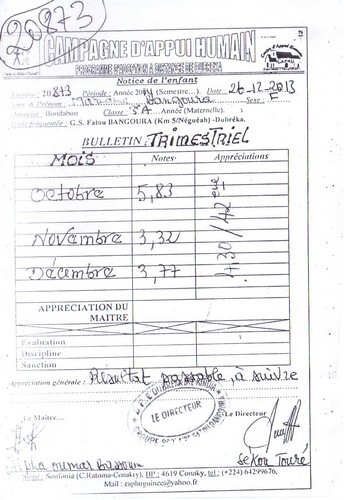 20873
CAMPAGNE D'APPUI HUMAIN
PROGRAMME D'ADOPTION A DISTANCE DE DUBREKA
Notice de l'enfant
20873 Période : Année 2014 (Semestre...). Date : 26-12-2013
& Prénom : Bangoura Sexe : F
Bondabon Classe : 5 A Année (Maternelle).
Ecole fréquentée : G.S. Fatou BANGOURA (Km 5/Néguéah) -Dubréka.
BULLETIN : TRIMESTRIEL
MOIS Notes Appréciations
Octobre 5,83
Novembre 3,32
Décembre 3,77
4,30/42
APPRECIATION DU MAITRE
Evaluation
Discipline
Sanction
Appréciation générale : Résultat passable, à suivre
Le Maître... Le Directeur
LE DIRECTEUR
oumar Bassoum Sekou Touré
Siège : Sonfonia (C.Ratoma-Conakry), BP : 4619 Conaky, tel : (+224) 64299676,
Mail : capluguinee@yahoo.fr